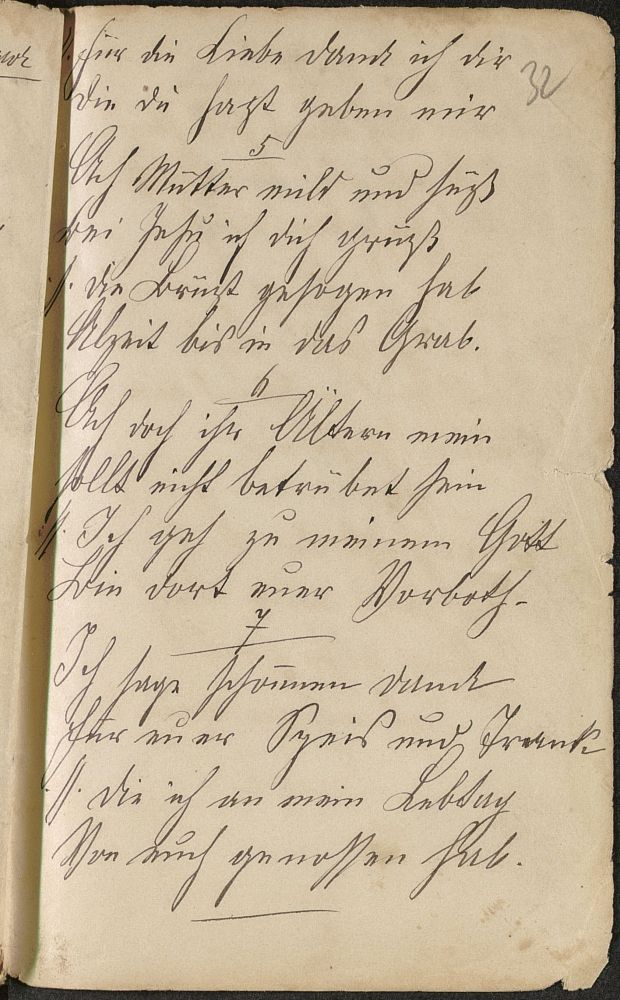 /. für die Liebe danck ich dir
32
die du hast geben mir
5
Ach Mutter mild und süß
bei Jesu ich dich grüß
/. die Brüst gesogen hab
Alzeit bis in das Grab.
6
Ach doch ihr Ältern mein
sollt nicht betrübet sein
/. Ich geh zu meinem Gott
Bin dort euer Vorboth.
7
Ich sage schönnen danck
für euer Speis und Trank
/. die ich an mein Lebtag
Von euch genossen hab.